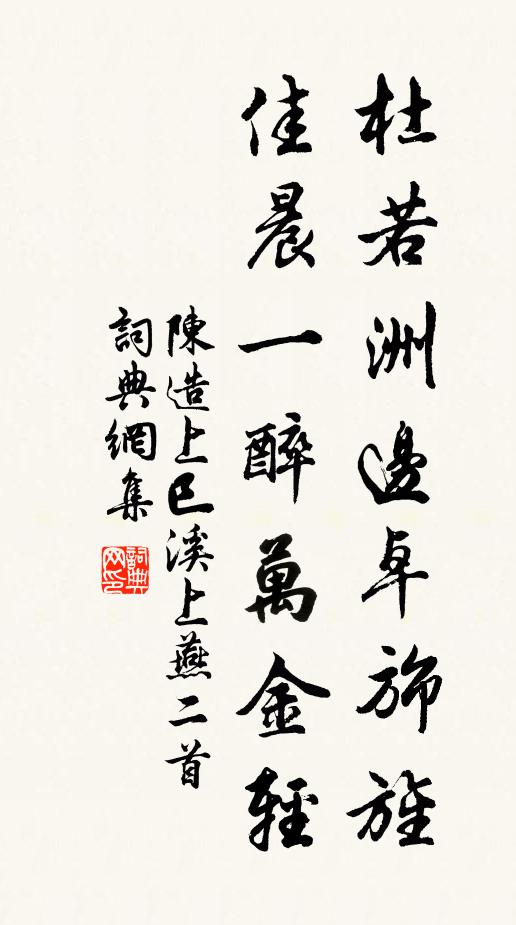 杜若洲邊卓斾旌
佳晨一醉萬金輕
陳造上巳溪上燕二首
詞典網集
詞典网印